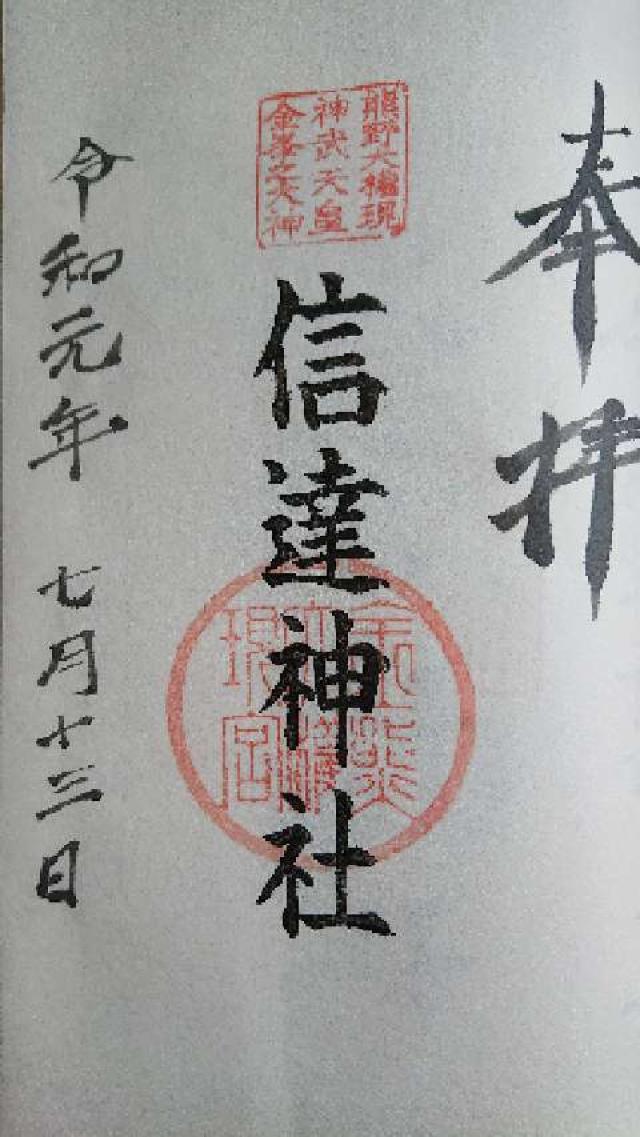 奉拝
熊野大権現
神武天皇
金峯之大神
信達神社
金熊
權
現宮
令和元年 七月十三日